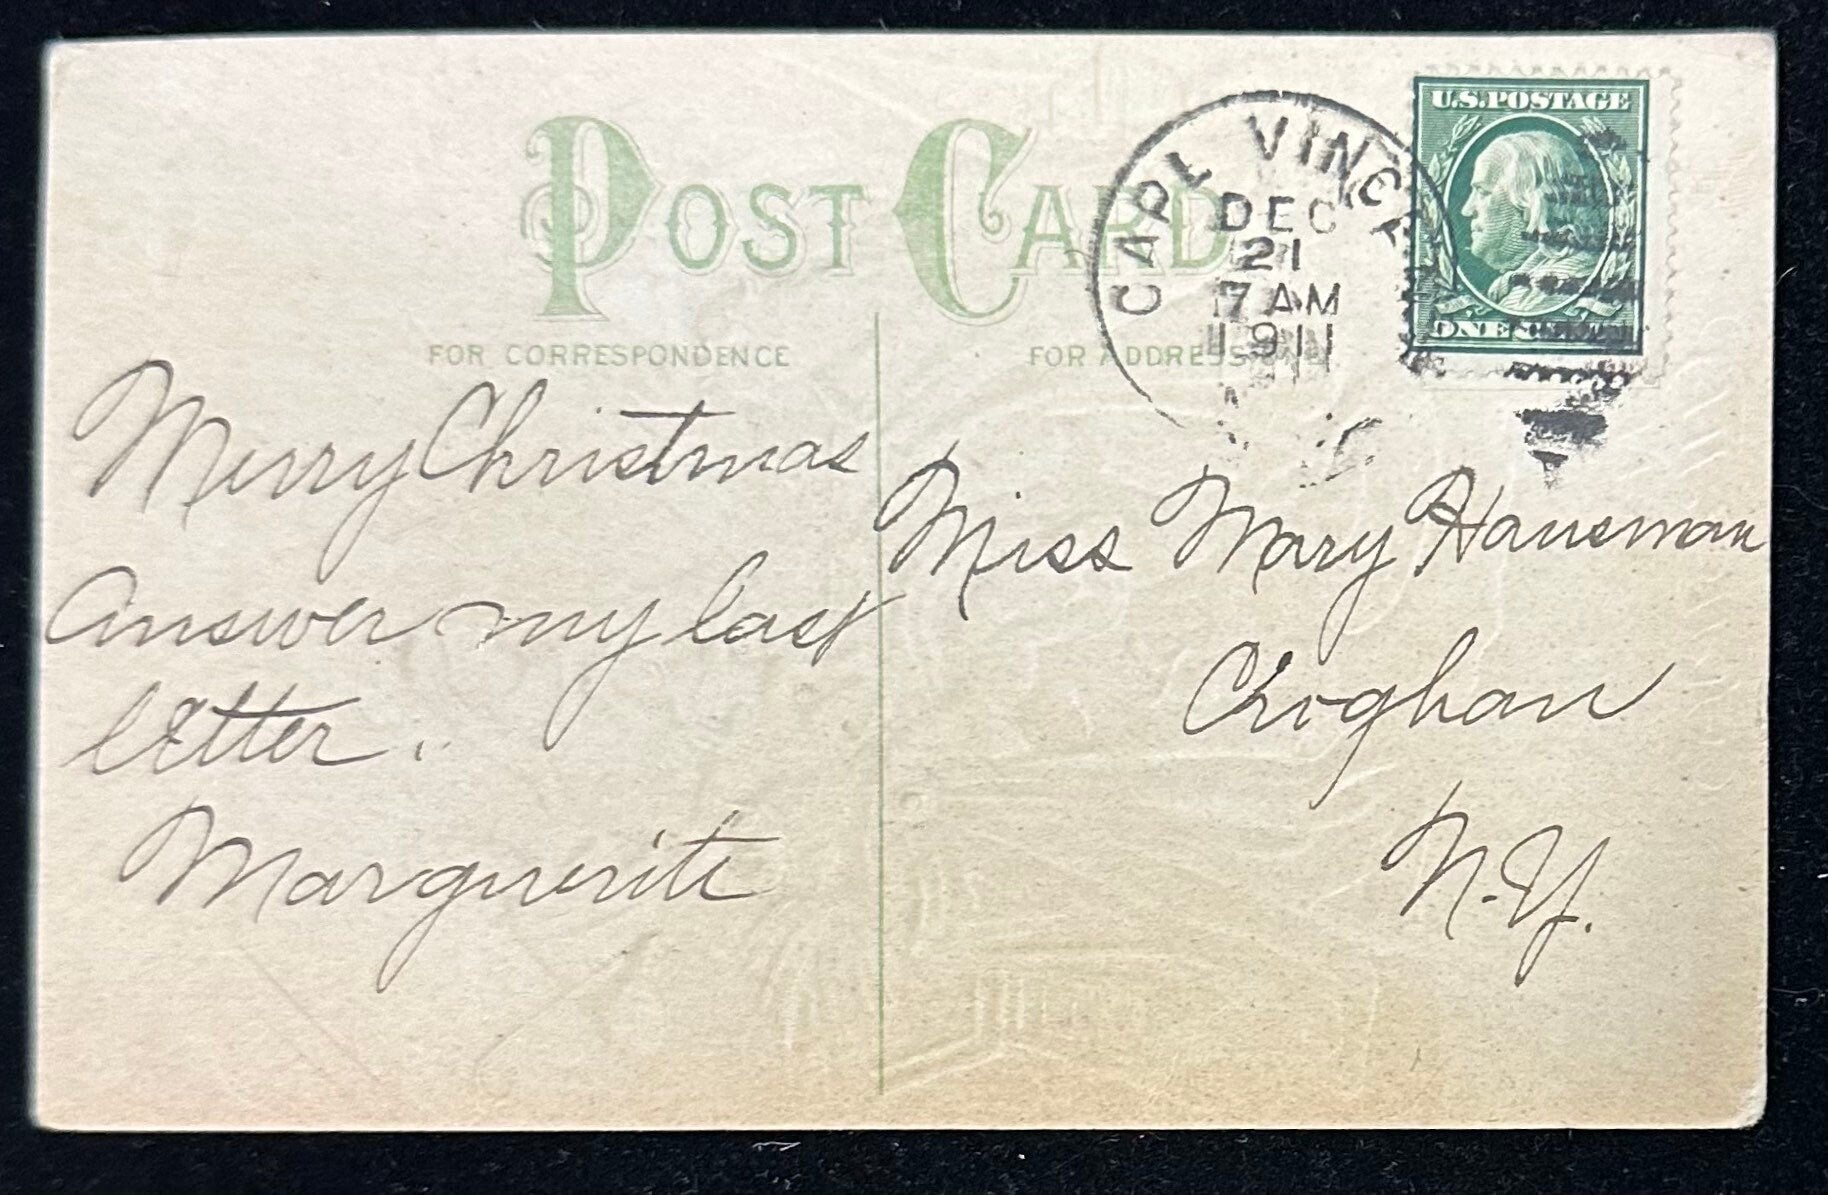 POST CARD
FOR CORRESPONDENCE
FOR ADDRESS
CAPE VINCENT
DEC
21
7 AM
1911
U.S. POSTAGE
ONE CENT
Merry Christmas
Answer my last
letter.
Marguerite
Miss Mary Hausman
Croghan
N.Y.